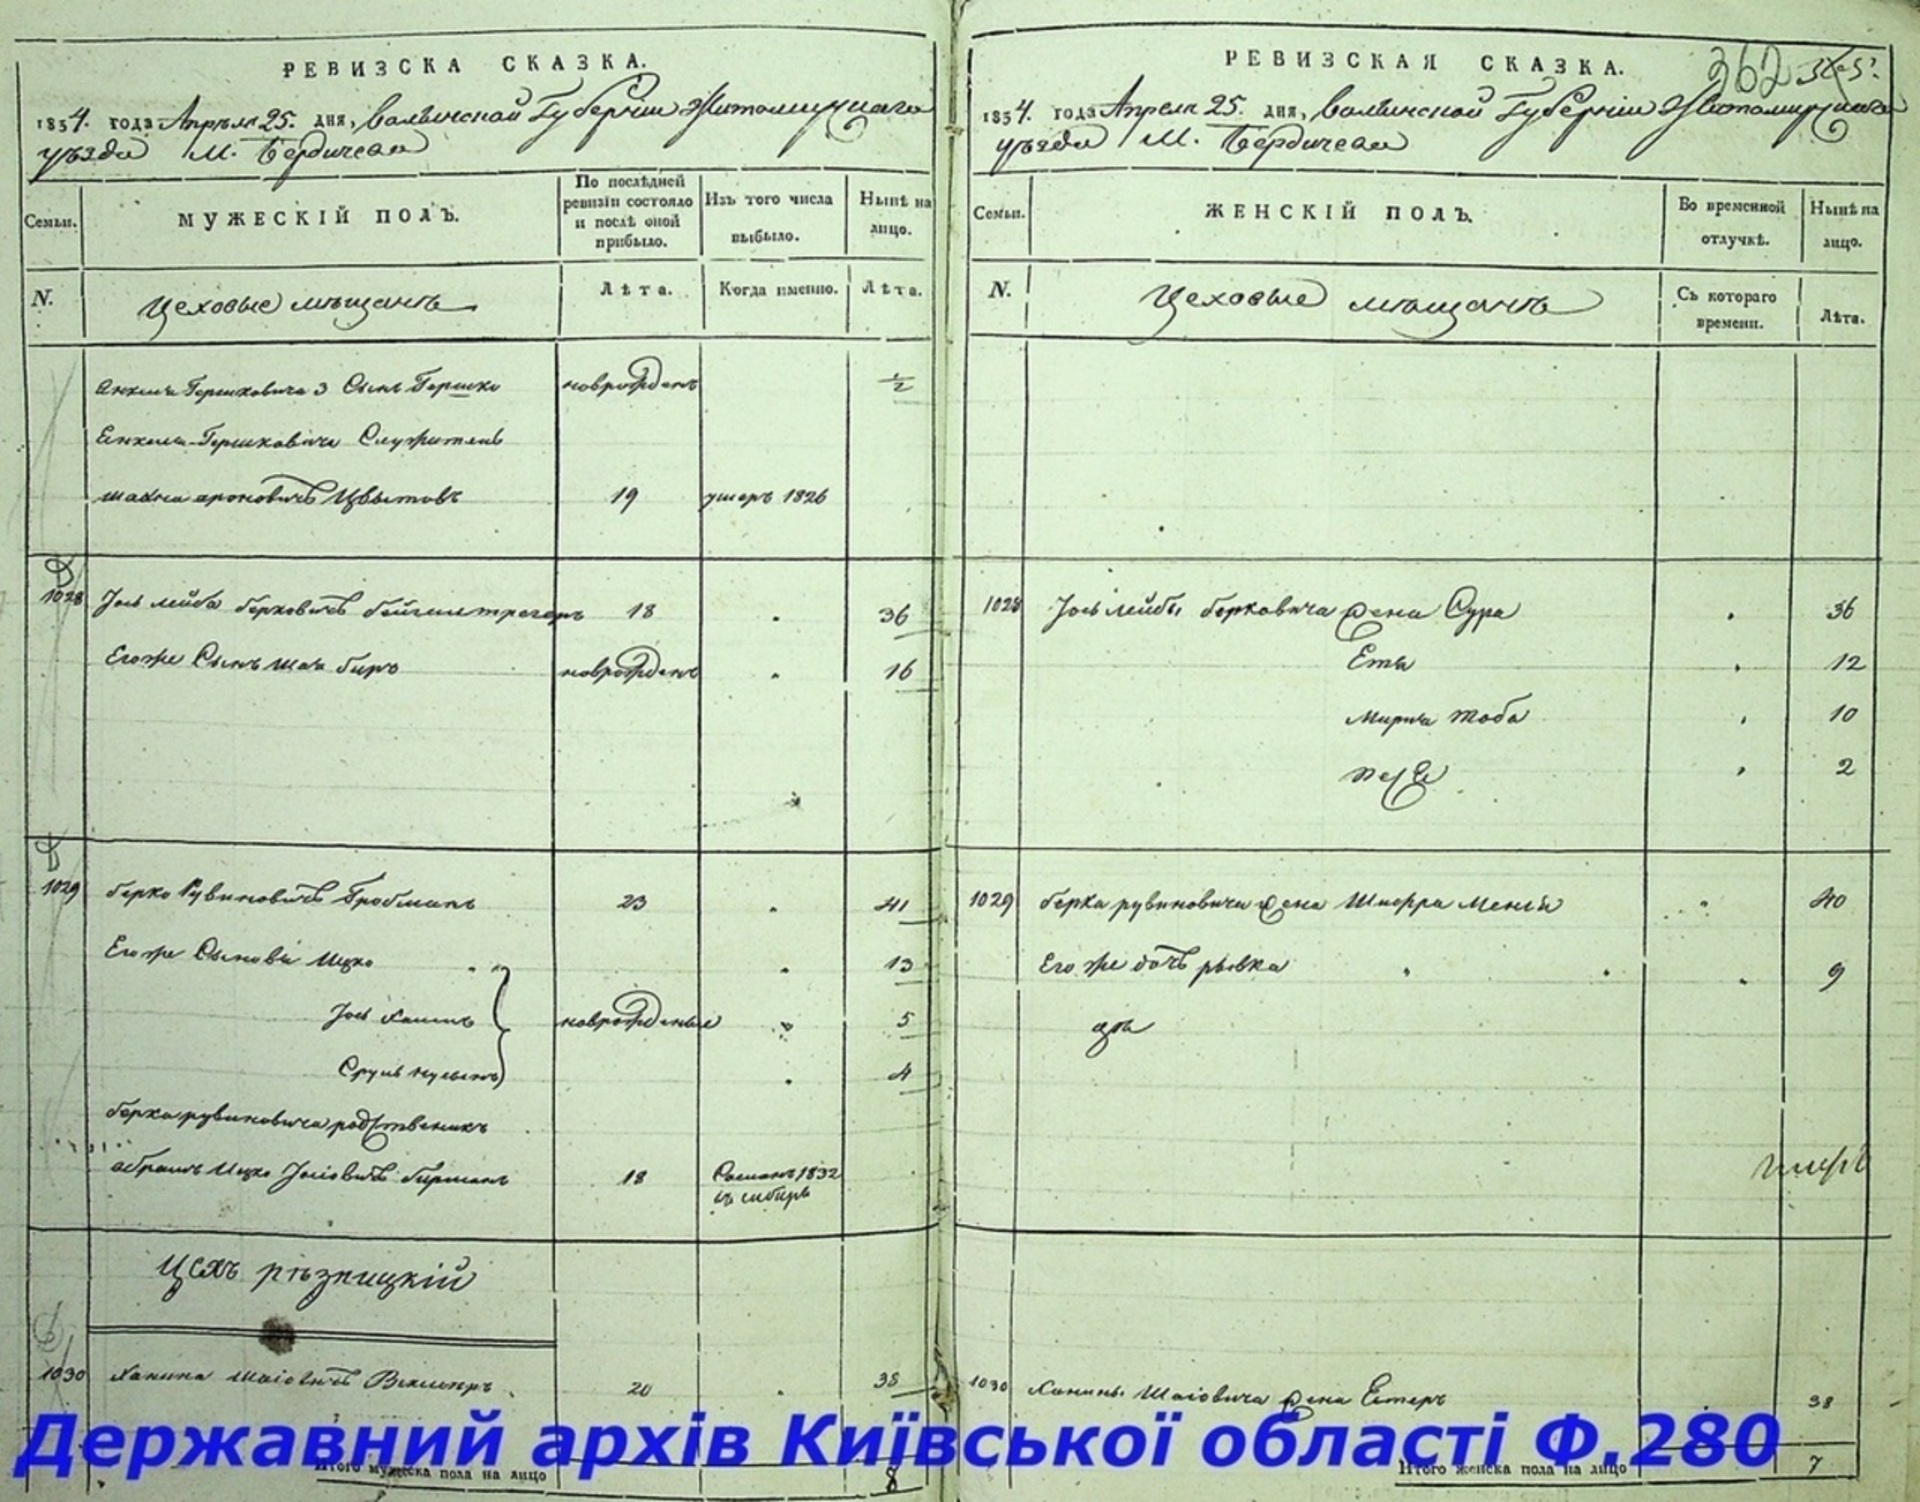 РЕВИЗСКА СКАЗКА.
1834. года Апрѣля 25. дня, Волынской Губерніи Житомирскаго
уѣзда М. Бердичева
Семьи.
МУЖЕСКІЙ ПОЛЪ.
По послѣдней ревизіи состояло и послѣ оной прибыло.
Изъ того числа выбыло.
Нынѣ на лицо.
N.
Цеховые мѣщанъ
Лѣта.
Когда именно.
Лѣта.
Гершковича 3 Сынъ Гершко новрожденъ ½
Гершковича Служитель
ароновичъ 19 умеръ 1826
1028 Іось Лейба Берковичъ 18 36
Его же Сынъ новрожденъ 16
1029 Берко Рувиновичъ Гробманъ 23 41
Его же Сыновья Ицко 13
Іось Хаимъ новрожденые 5
Сруль 4
Берка Рувиновича родственикъ
Абрамъ Ицко Іосіовичъ 18 Сосланъ 1832
въ сибирь
Цехъ рѣзницкій
1030 Ханина Шаіовичъ 20 38
Итого мужеска пола на лицо 8
РЕВИЗСКАЯ СКАЗКА.
362
1834. года Апреля 25. дня, Волынской Губерніи Житомирскаго
уѣзда М. Бердичева
Семьи.
ЖЕНСКІЙ ПОЛЪ.
Во временной отлучкѣ.
Нынѣ на лицо.
N.
Цеховые мѣщанъ
Съ котораго времени.
Лѣта.
1028 Іось Лейбы Берковича жена Сура 36
Еты 12
Тоба 10
2
1029 Берка Рувиновича жена 40
Его же дочь рывка 9
1030 Ханины Шаіовича жена Естеръ 38
Итого женска пола на лицо 7
Державний архів Київської області Ф.280